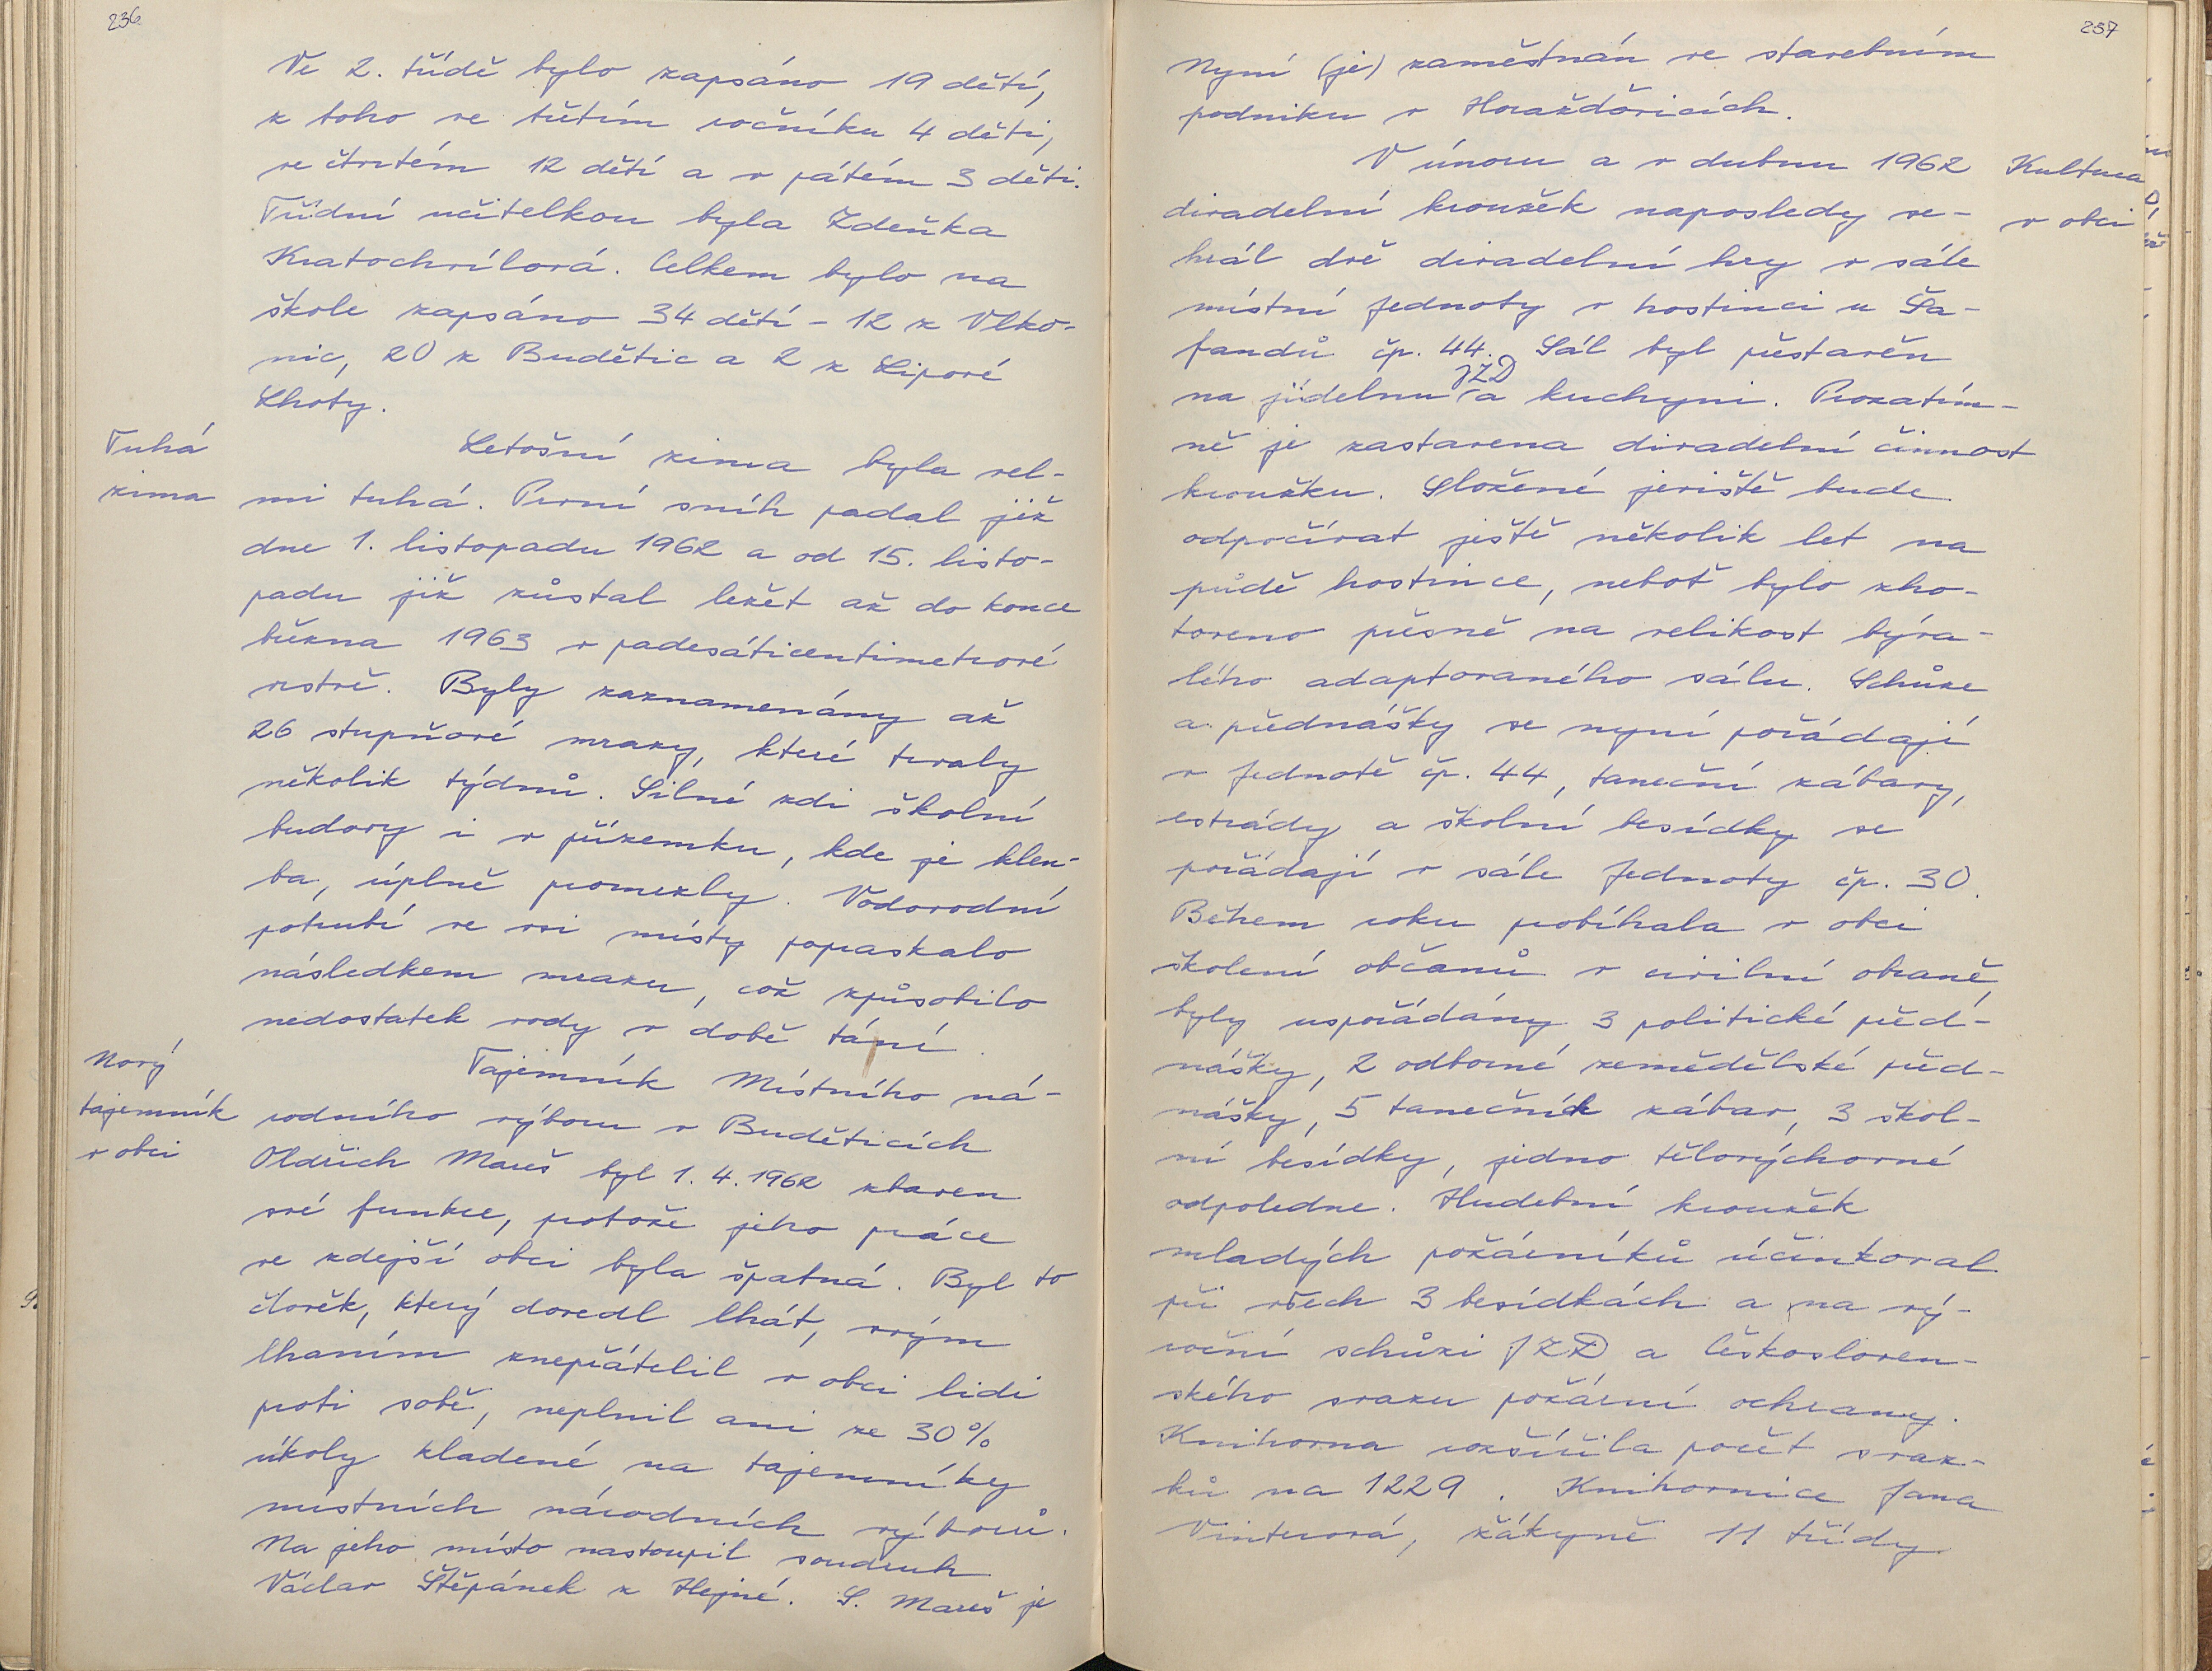 236.
Ve 2. třídě bylo zapsáno 19 dětí,
z toho ve třetím ročníku 4 děti,
ve čtvrtém 12 dětí a v pátém 3 děti.
Třídní učitelkou byla Zdeňka
Kratochvílová. Celkem bylo na
škole zapsáno 34 dětí - 12 z Vlko-
nic, 20 z Budětic a 2 z Lipové
Lhoty.
Tuhá
zima
Letošní zima byla vel-
mi tuhá. První sníh padal již
dne 1. listopadu 1962 a od 15. listo-
padu již zůstal ležet až do konce
března 1963 v padesáticentimetrové
vrstvě. Byly zaznamenány až
26 stupňové mrazy, které trvaly
několik týdnů. Silné zdi školní
budovy i v přízemku, kde je klen-
ba, úplně promrzly. Vodovodní
potrubí ve vsi místy popraskalo
následkem mrazu, což způsobilo
nedostatek vody v době tání.
Nový
tajemník
v obci
Tajemník Místního ná-
rodního výboru v Buděticích
Oldřich Mareš byl 1. 4. 1962 zbaven
své funkce, protože jeho práce
ve zdejší obci byla špatná. Byl to
člověk, který dovedl lhát, svým
lhaním znepřátelil v obci lidi
proti sobě, neplnil ani ze 30%
úkoly kladené na tajemníky
místních národních výborů.
Na jeho místo nastoupil soudruh
Václav Štěpánek z Hejné. S. Mareš je
237
Nyní (je) zaměstnán ve stavebním
podniku v Horažďovicích.
Kultura
v obci
V únoru a v dubnu 1962
divadelní kroužek naposledy se-
hrál dvě divadelní hry v sále
místní Jednoty v hostinci u Ša-
fandů čp. 44. Sál byl přestavěn
JZD
na jídelnu a kuchyni. Prozatím-
ně je zastavena divadelní činnost
kroužku. Složené jeviště bude
odpočívat ještě několik let na
půdě hostince, neboť bylo zho-
toveno přesně na velikost býva-
lého adaptovaného sálu. Schůze
a přednášky se nyní pořádají
v Jednotě čp. 44, taneční zábavy,
estrády a školní besídky se
pořádají v sále Jednoty čp. 30.
Během roku probíhala v obci
školení občanů v civilní obraně,
byly uspořádány 3 politické před-
nášky, 2 odborné zemědělské před-
nášky, 5 tanečních zábav, 3 škol-
ní besídky, jedno tělovýchovné
odpoledne. Hudební kroužek
mladých požárníků účinkoval
při všech 3 besídkách a na vý-
roční schůzi JZD a Českosloven-
ského svazu požární ochrany.
Knihovna rozšířila počet svaz-
ků na 1229. Knihovnice Jana
Vinterová, žákyně 11 třídy